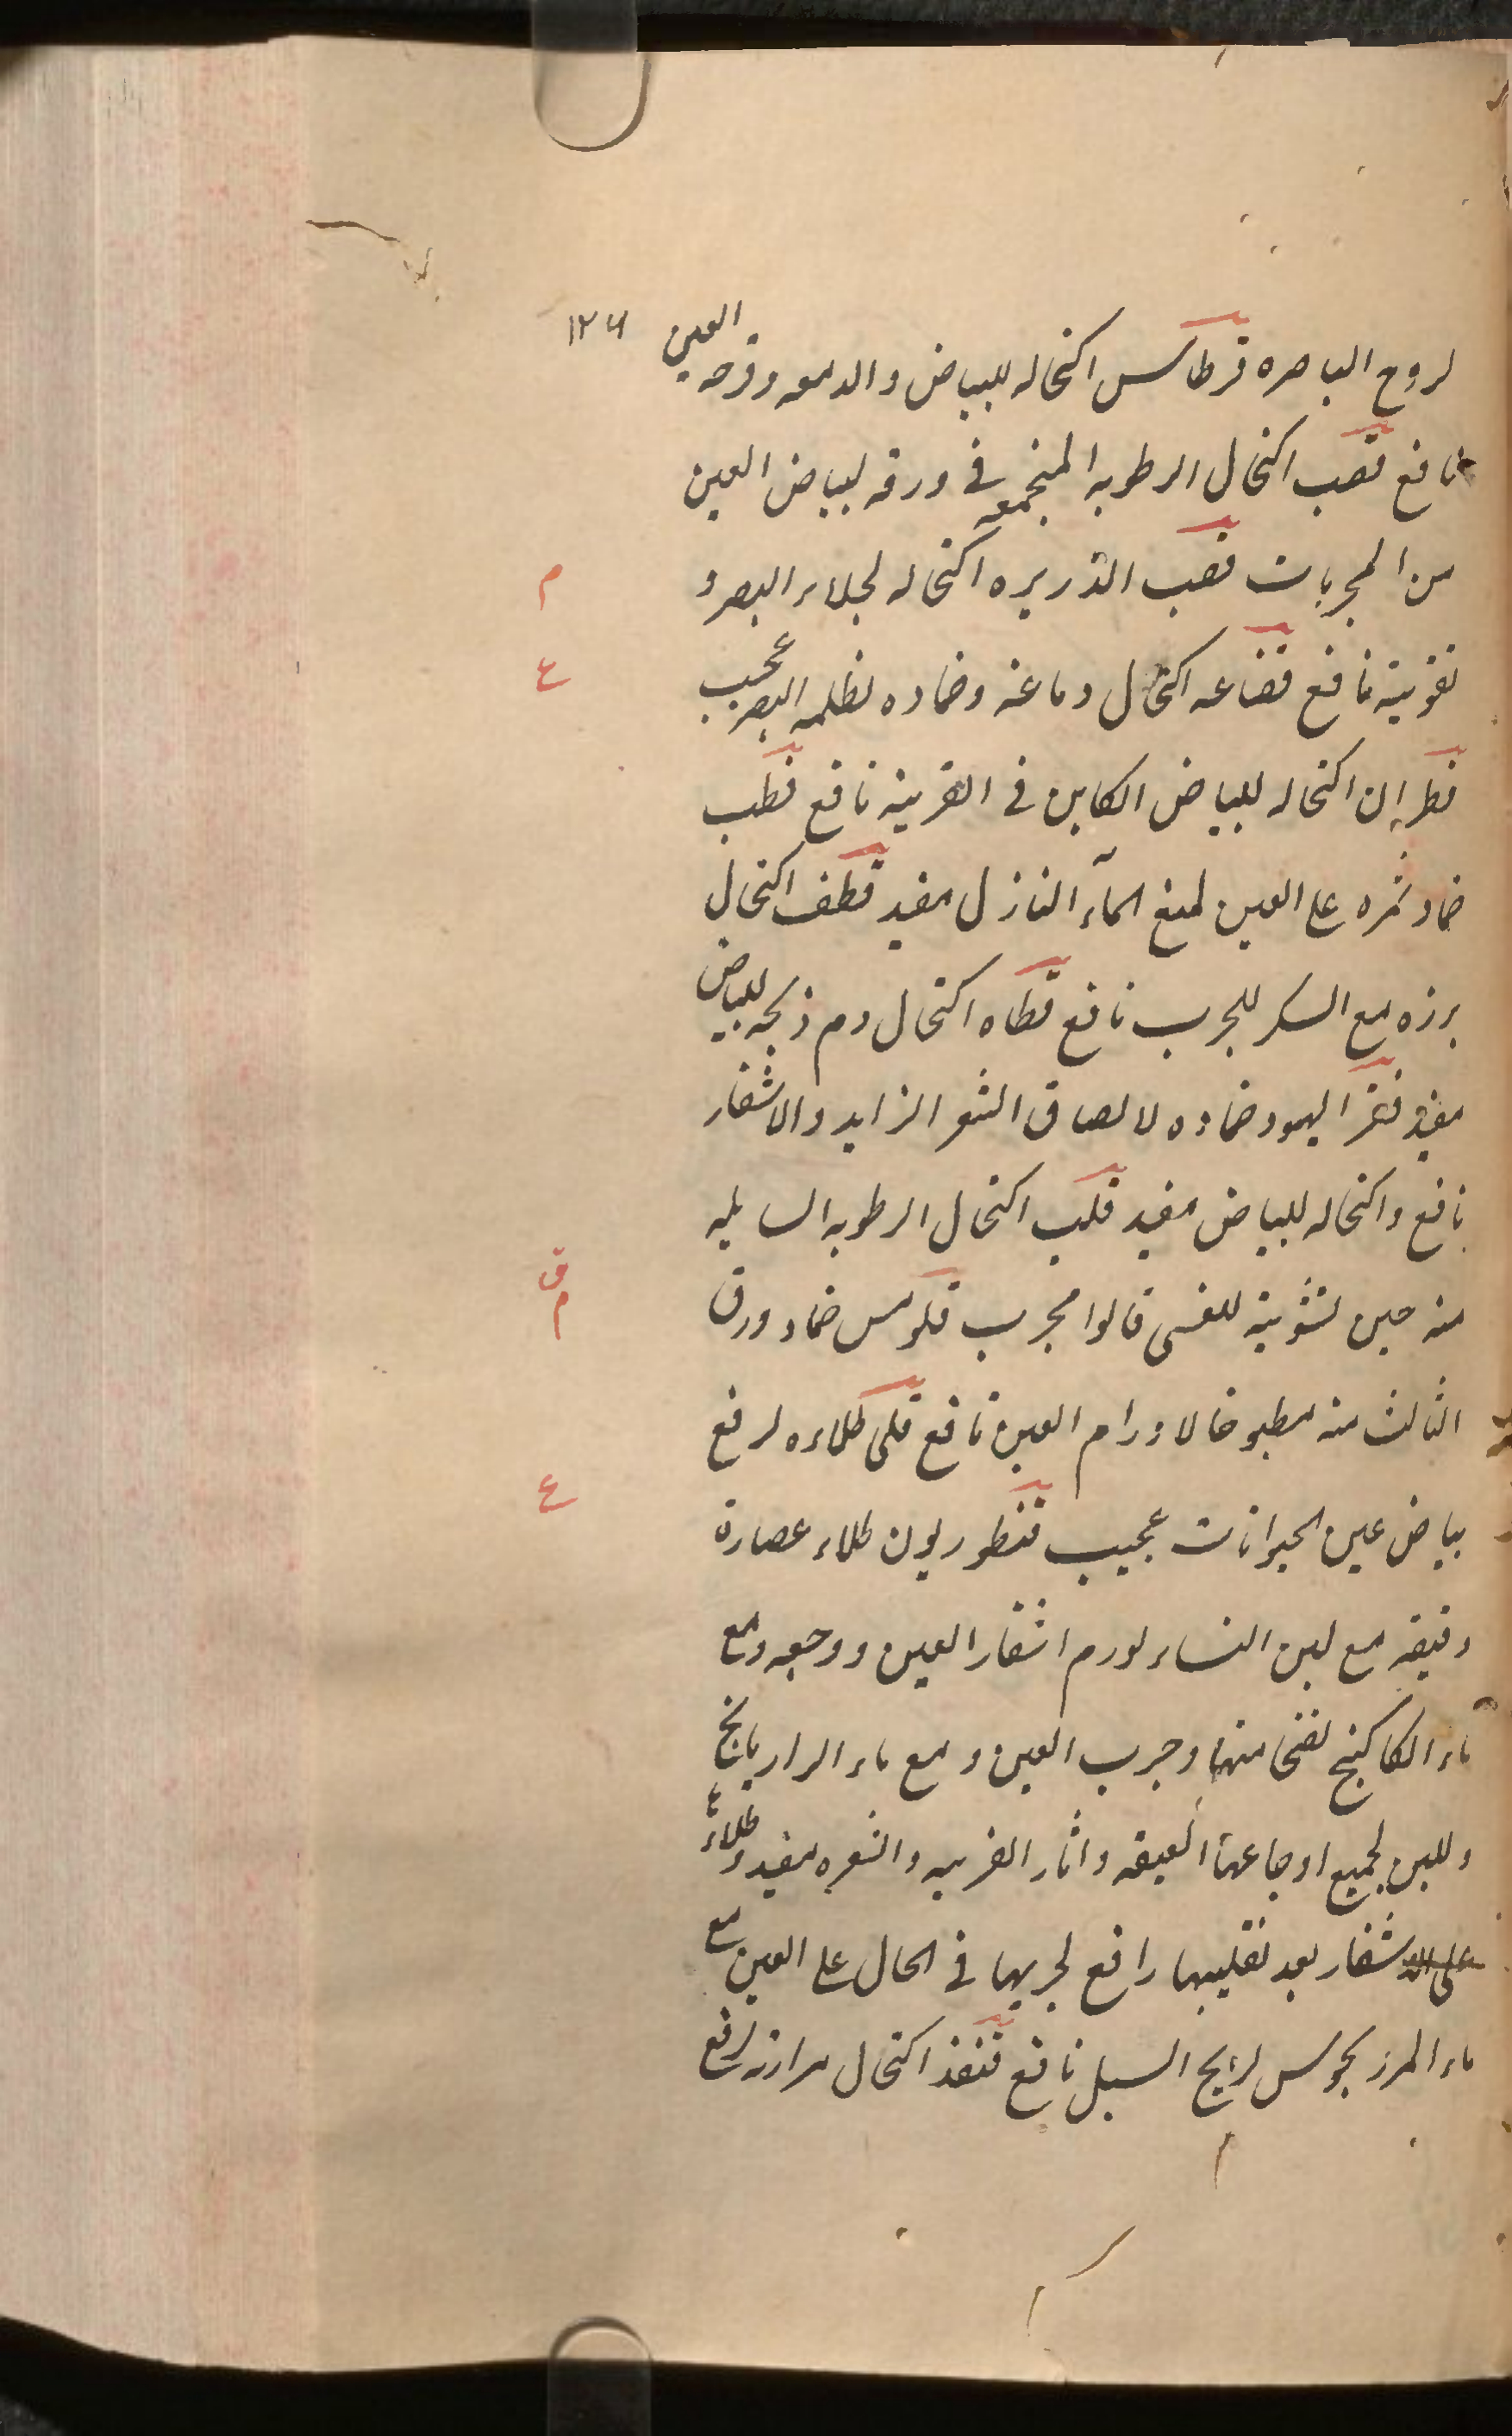 ١٢٦
لروح الباصره قرطاس اكتحاله للبياض والدمعه وقرحه العين
نافع قصب اكتحال الرطوبه المنجمعه في ورقه لبياض العين
من المجربات قصب الذريره اكتحاله لجلاء البصر و
م
تقويته نافع قضاعه اكتحال دماغه وضماده لظلمه البصر عجيب
ع
قطران اكتحاله للبياض الكاين في القرنيه نافع قطب
ضماد ثمره على العين لمنع المآء النازل مفيد قطف اكتحال
برزه مع السكر للجرب نافع قطاه اكتحال دم ذبحه للبياض
مفيد قفر اليهود ضماده لالصاق الشعر الزايد والاشفار
نافع واكتحاله للبياض مفيد قلب اكتحال الرطوبه السايله
منه حين تشويته للغشى قالوا مجرب قلومس ضماد ورق
ق م
الثالث منه مطبوخا لاورام العين نافع قلى طلاءه لرفع
بياض عين الحيوانات عجيب قنطوريون طلاء عصارة
ع
دقيقه مع لبن النساء لورم اشفار العين ووجعه ومع
ماء الكاكنج لفتحا منها وجرب العين ومع ماء الرازيانج
وللبن لجميع اوجاعها العتيقه واثار القرنيه والشعره مفيد وطلاءً
على الاشفار بعد تقليبها رافع لجربها في الحال على العين مع
ماء المرزنجوش لريح السبل نافع قنفذ اكتحال مرارته لرفع